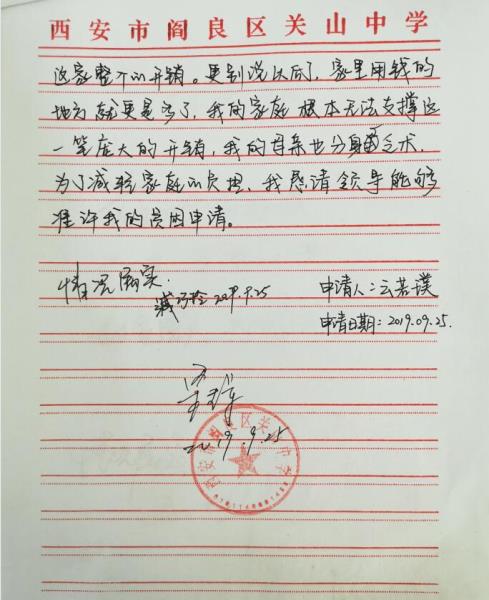 西安市阎良区关山中学
这家整个的开销。更别说以后了，家里用钱的
地方就更是多了，我的家庭根本无法支撑这
一笔庞大的开销，我的母亲也分身乏术，
为了减轻家庭的负担，我恳请领导能够
准许我的贫困申请。
情况属实.
2019.9.25
申请人：云若璞
申请日期：2019.09.25.
2019.9.25
西安市阎良区关山中学